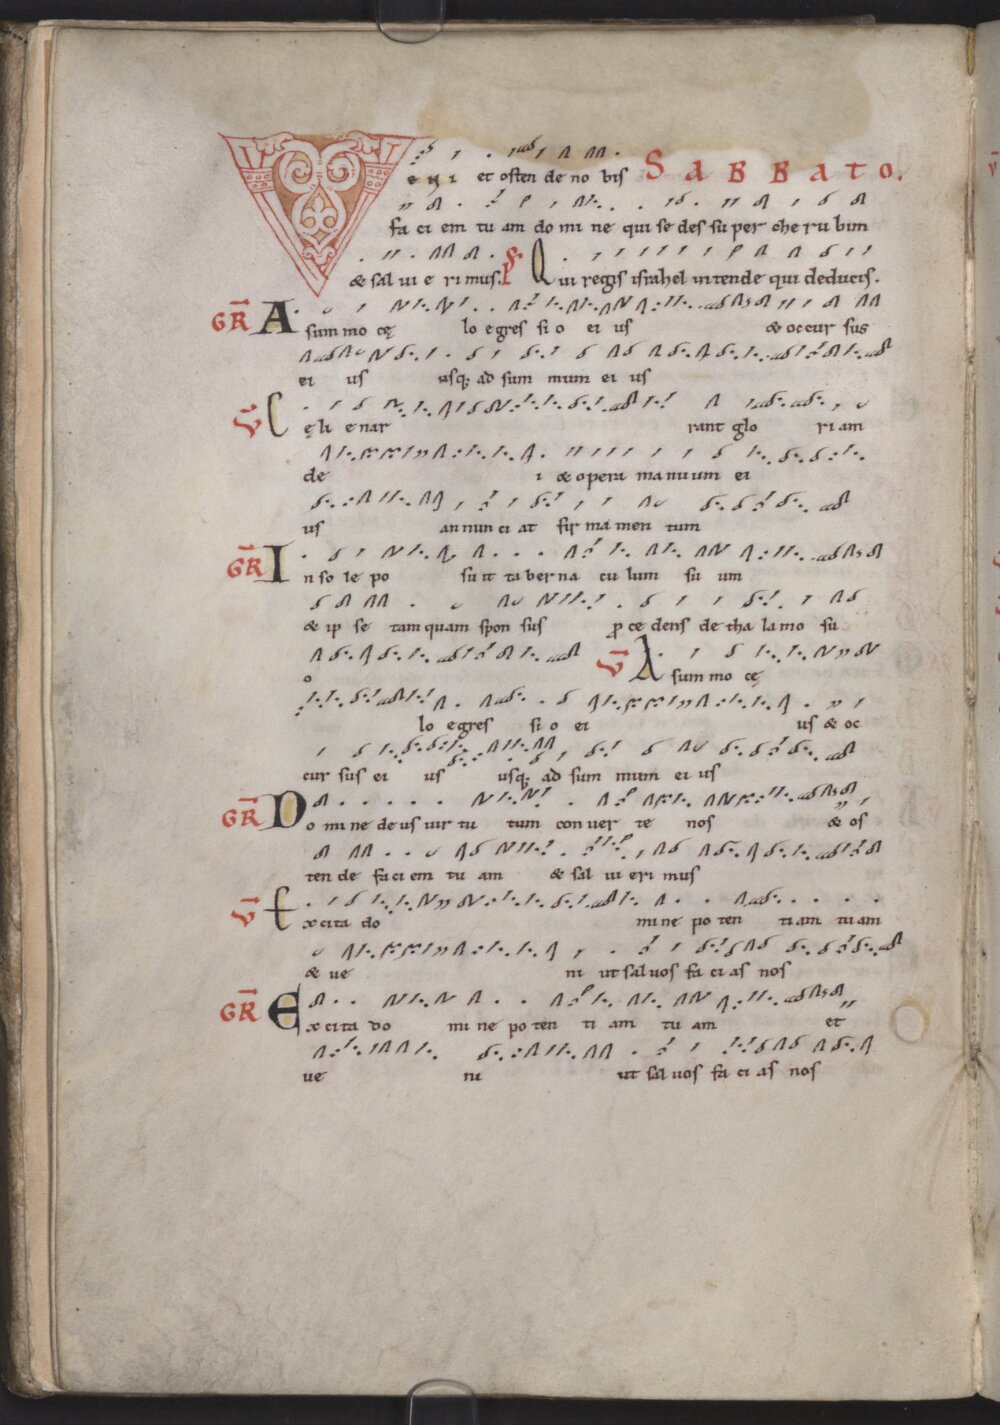 VENI et ostende nobis SABBATO.
faciem tuam domine qui sedes super cherubim
& salvi erimus. Ps Qui regis israhel intende qui deducis.
GR A summo cę lo egressio eius & occursus
eius usq; ad summum eius
V Cęli enar rant gloriam
de i & opera manuum ei
us annunciat firmamentum
GR In sole posuit tabernaculum suum
& ipse tamquam sponsus procedens de thalamo su
o V A summo cę
lo egressio ei us & oc
cursus eius usq; ad summum eius
GR Domine deus virtutum converte nos & os
tende faciem tuam & salvi erimus
V Excita domine potentiam tuam
& ve ni ut salvos facias nos
GR Excita domine potentiam tuam et
ve ni ut salvos facias nos